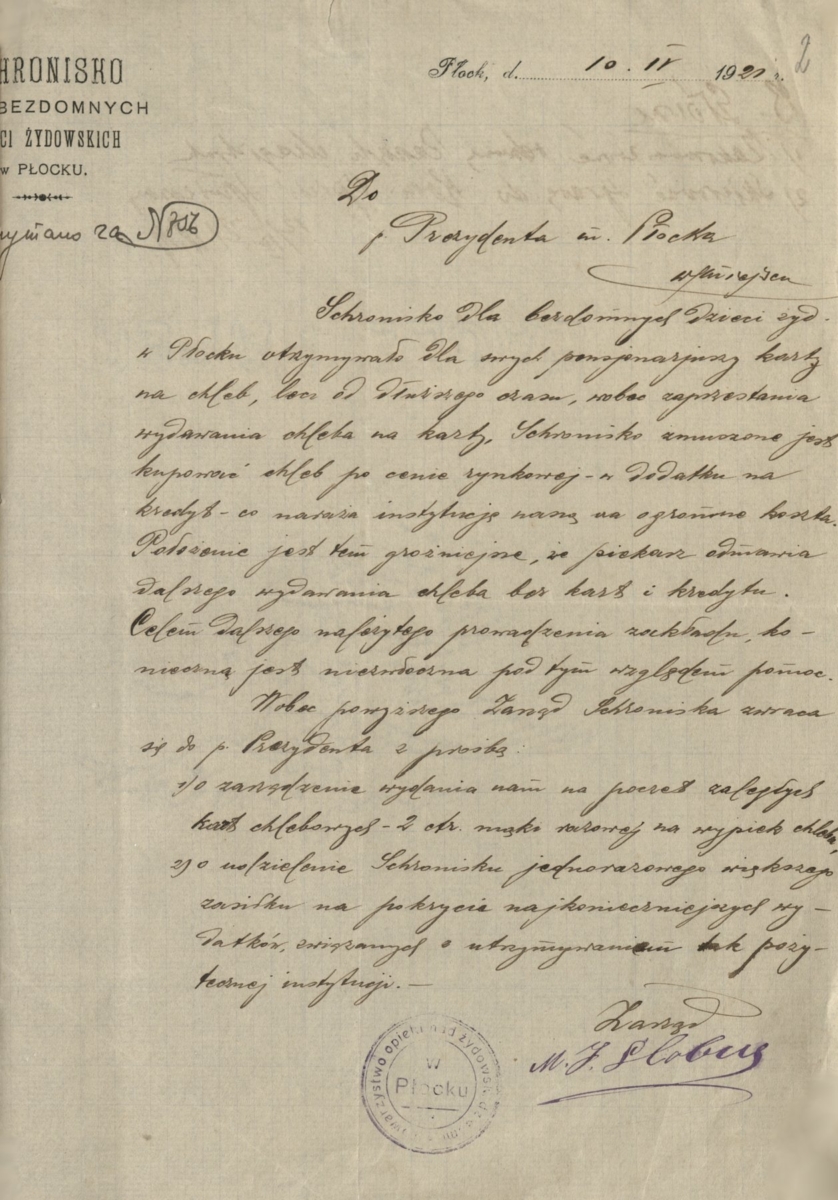 HRONISKO
BEZDOMNYCH
CI ŻYDOWSKICH
w PŁOCKU.
Płock, d. 10. IV 1921 r.
2
za N 706
Do
p. Prezydenta m. Płocka
w miejscu
Schronisko dla bezdomnych dzieci żyd.
w Płocku otrzymywało dla swych pensjonarjuszy karty
na chleb, lecz od dłuższego czasu, wobec zaprzestania
wydawania chleba na karty, Schronisko zmuszone jest
kupować chleb po cenie rynkowej - w dodatku na
kredyt - co naraża instytucję naszą na ogromne koszta.
Położenie jest tem groźniejsze, że piekarz odmawia
dalszego wydawania chleba bez kart i kredytu.
Celem dalszego należytego prowadzenia zakładu, ko-
nieczną jest niezwłoczna pod tym względem pomoc.
Wobec powyższego Zarząd Schroniska zwraca
się do p. Prezydenta z prośbą:
1) o zarządzenie wydania nam na poczet zaległych
kart chlebowych - 2 ctr. mąki razowej na wypiek chleba,
2) o udzielenie Schronisku jednorazowego większego
zasiłku na pokrycie najkonieczniejszych wy-
datków, związanych z utrzymywaniem tak poży-
tecznej instytucji. -
Zarząd
M. J. Globus
Towarzystwo opieki nad żydowsk.
w
Płocku